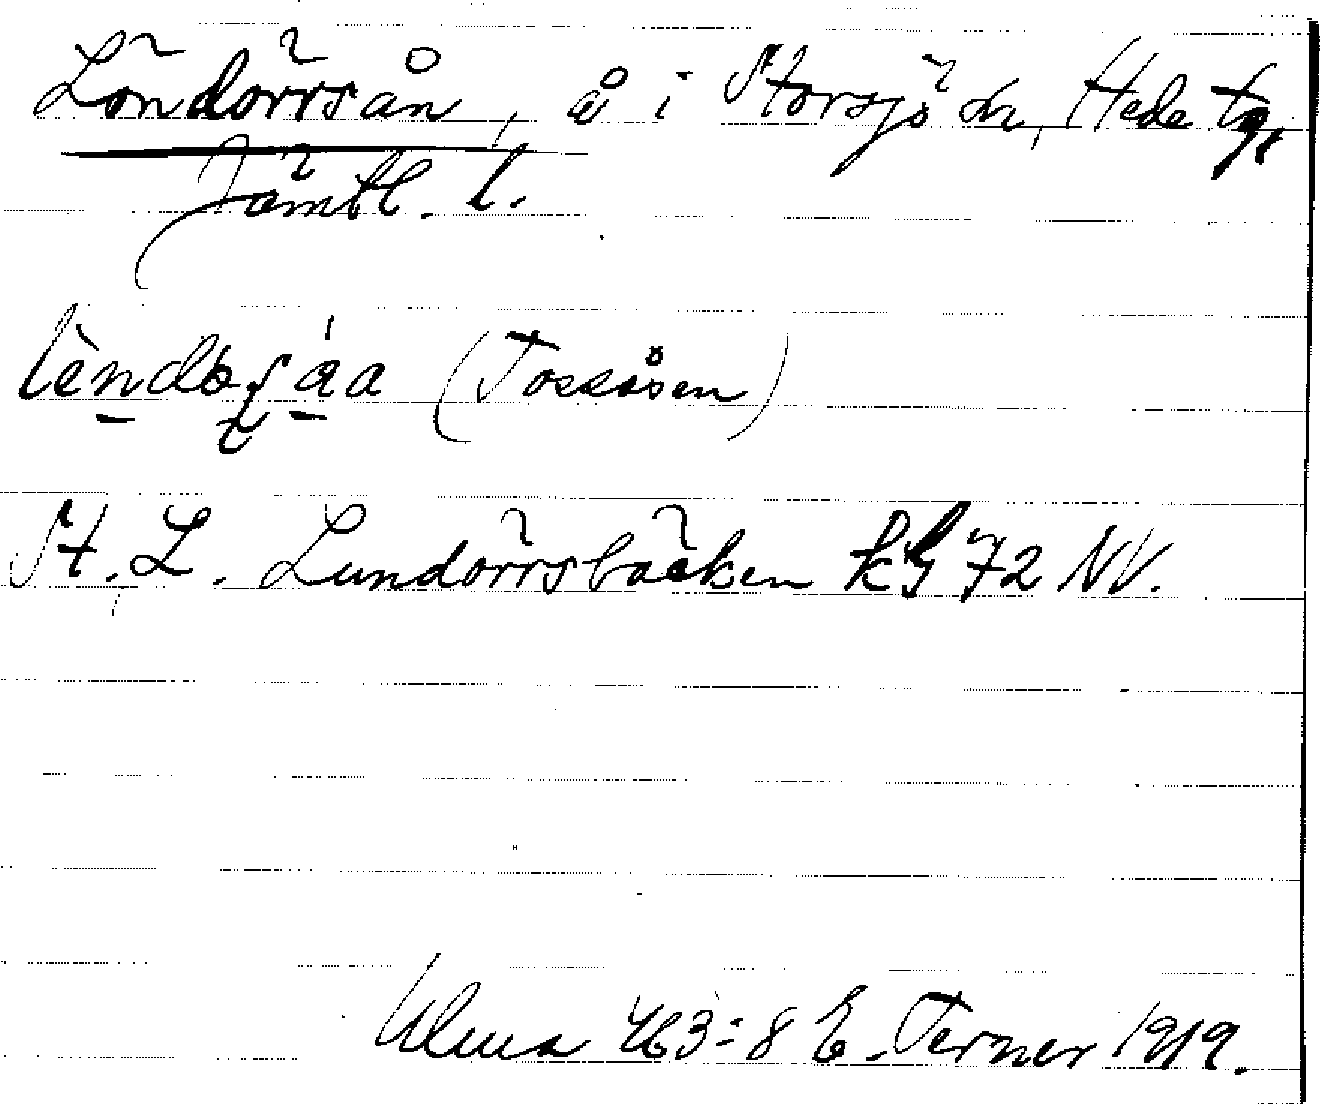 Löndörrsån, å i Storsjö sn, Hede tg,
Jämtl. l.
(Tossåsen)
St. L. Lundörrsbäcken kbl 72 NV.
Ulma 463:8 E. Terner 1919.